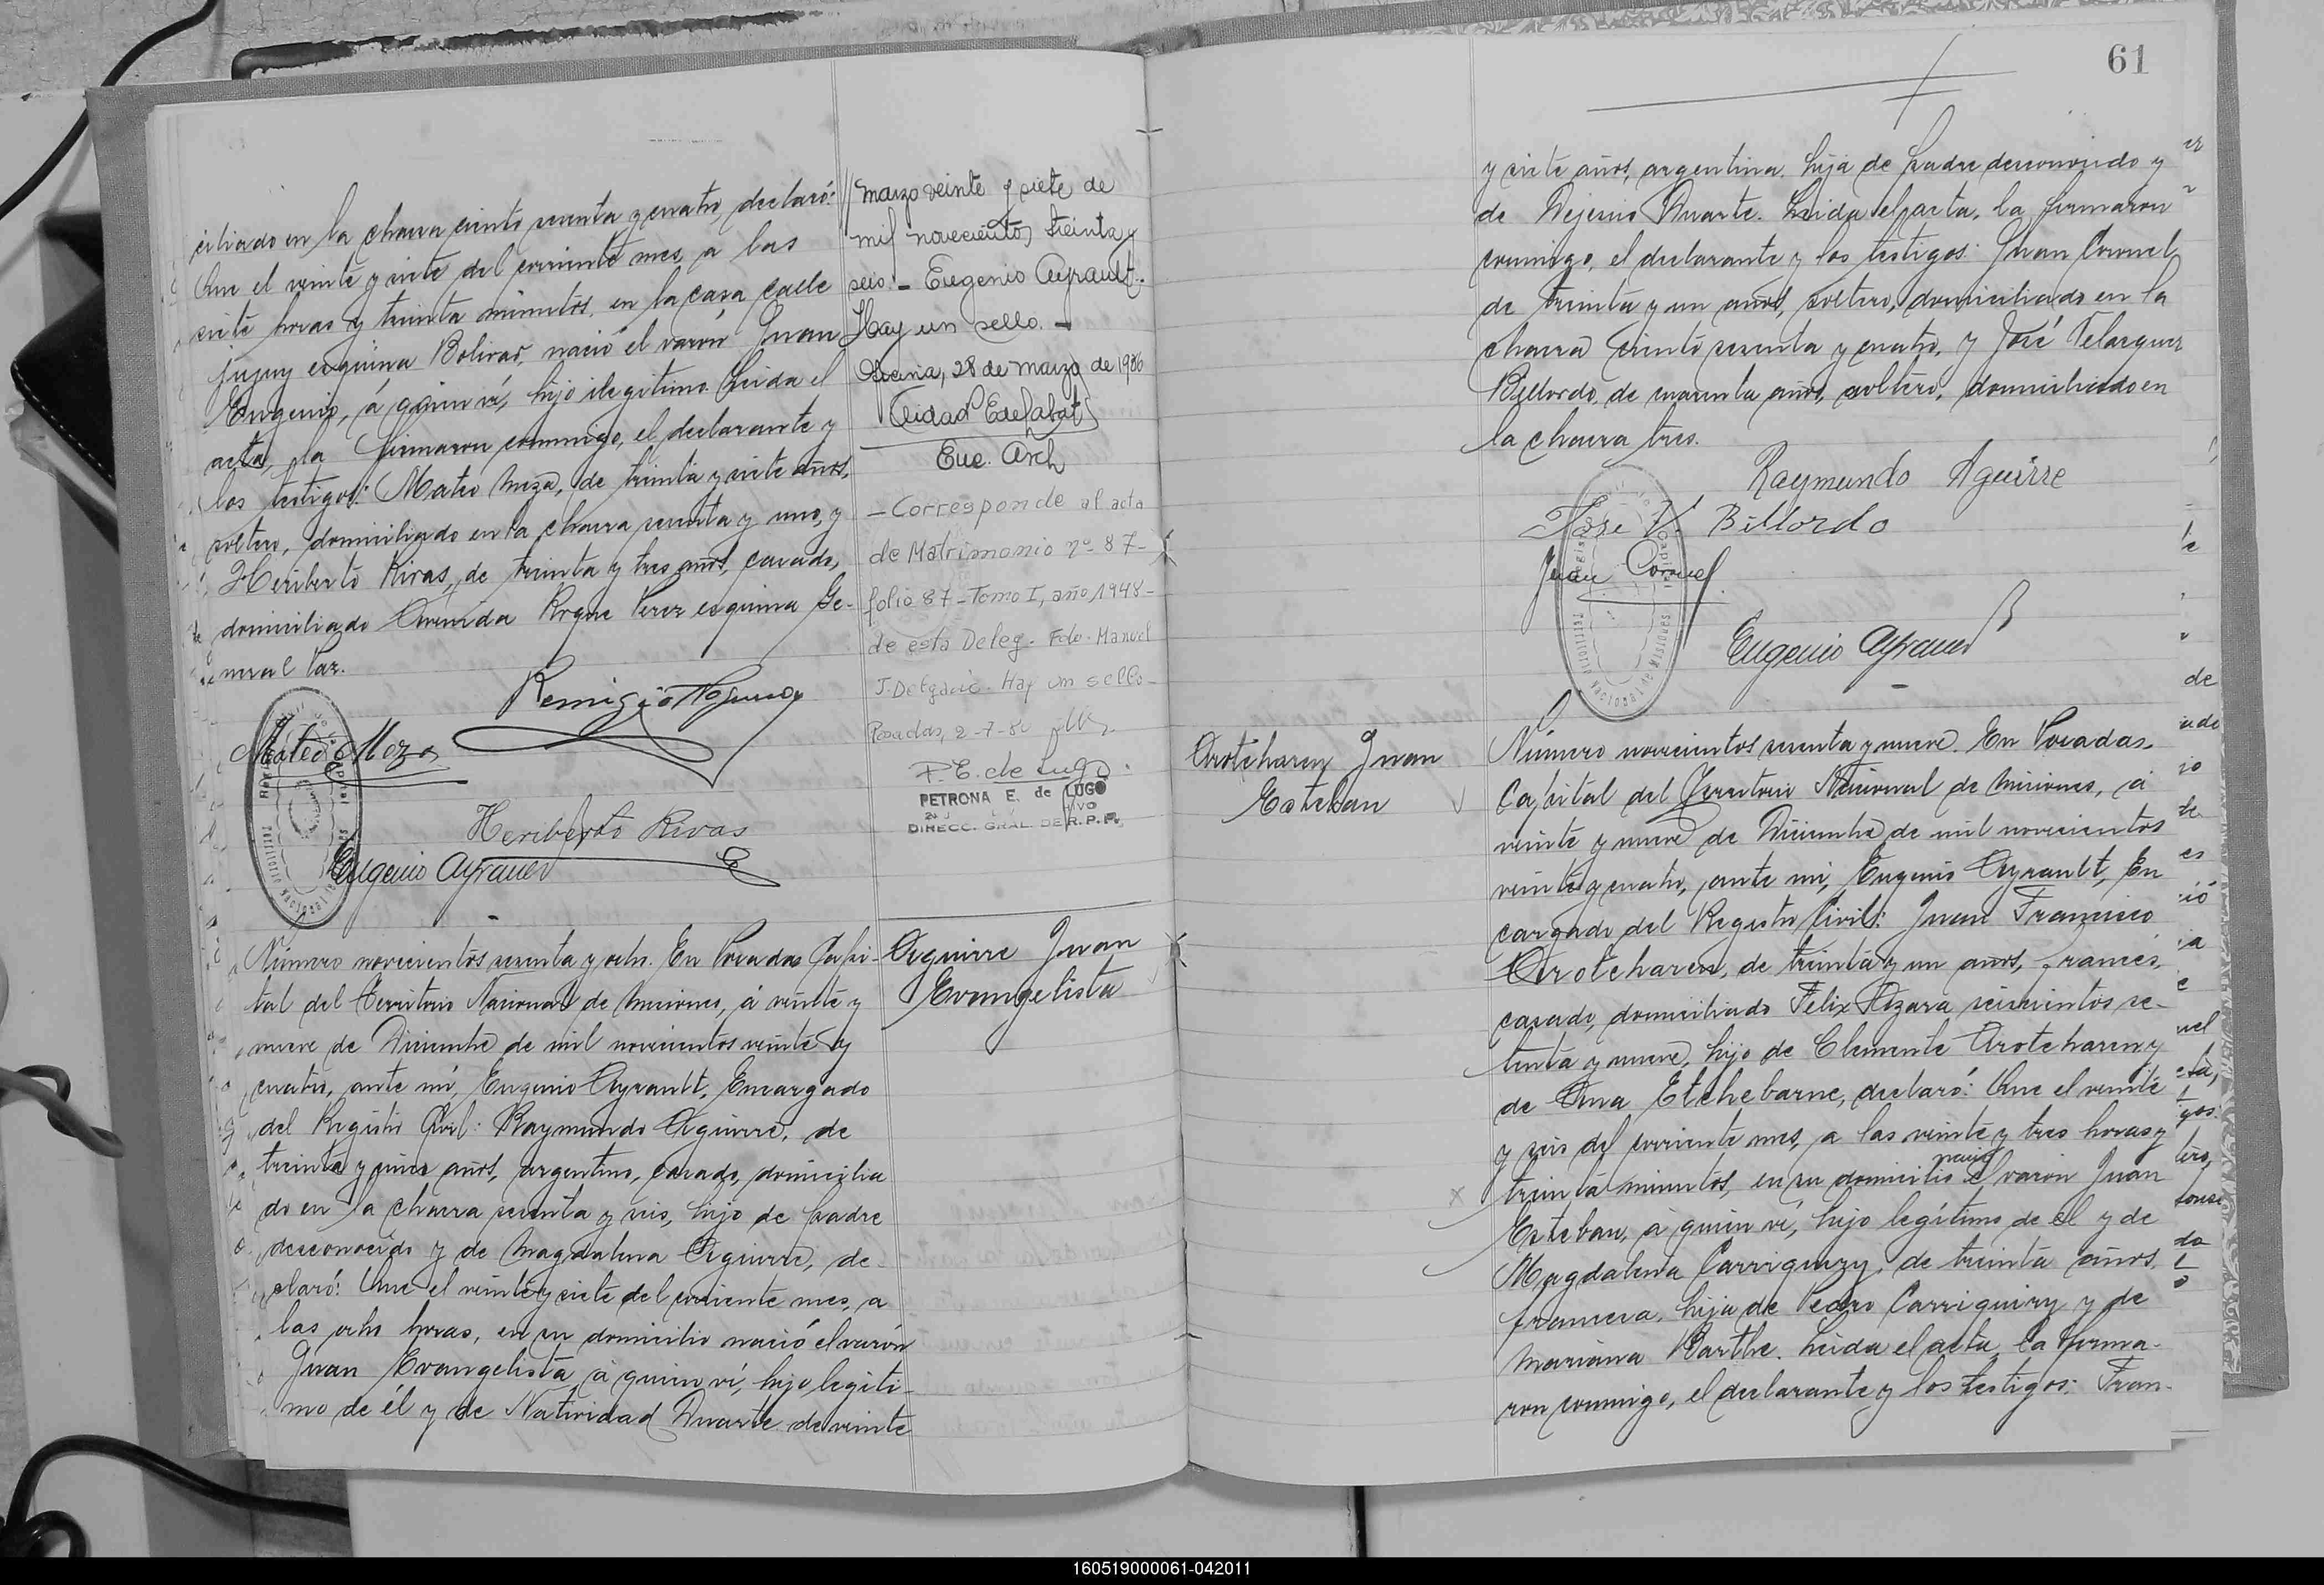 ciliado en la chacra ciento sesenta y cuatro, declaró:
Que el veinte y siete del corriente mes, a las
siete horas y treinta minutos, en la casa calle
Jujuy esquina Bolivar, nació el varón Juan
Eugenio, á quien ví, hijo ilegitimo. Leida el
acta, la firmaron conmigo, el declarante y
los testigos: Mateo Meza, de treinta y siete años,
soltero, domiciliado en la chacra sesenta y uno, y
Heriberto Rivas, de treinta y tres años, casado,
domiciliado Avenida Roque Perez esquina Ge-
neral Paz.
Mateo Meza
Heriberto Rivas
Eugenio Ayrault
// marzo veinte y siete de
mil novecientos treinta y
seis. - Eugenio Ayrault.
Hay un sello. -
28 de marzo de 1986
Enc. Arch
- Corresponde al acta
de Matrimonio nº 87-
folio 87 - Tomo I, año 1948-
de esta Deleg. Fdo. Manuel
J. Delgado. Hay un sello-
Posadas, 2-7-8
P. E. de Lugo.
PETRONA E. de LUGO
DIRECC. GRAL. DE R.P.P.
Número novecientos sesenta y ocho. En Posadas Capi-
tal del Territorio Nacional de Misiones, á veinte y
nueve de Diciembre de mil novecientos veinte y
cuatro, ante mí, Eugenio Ayrault, Encargado
del Registro Civil: Raymundo Aguirre, de
treinta y cinco años, argentino, casado, domicilia
do en la chacra sesenta y seis, hijo de padre
desconocido y de Magdalena Aguirre, de-
claró: Que el veinte y siete del corriente mes, a
las ocho horas, en su domicilio nació el varón
Juan Evangelista, á quien ví, hijo legiti-
mo de él y de Natividad Duarte de veinte
Aguirre Juan
Evangelista
61
y siete años, argentina, hija de padre desconocido y
de Duarte. Leida el acta, la firmaron
conmigo, el declarante y los testigos: Juan Coronel
de treinta y un años, soltero, domiciliado en la
chacra ciento sesenta y cuatro, y José Velazquez
Billordo, de cuarenta años, soltero, domiciliado en
la chacra tres.
Raymundo Aguirre
José V. Billordo
Juan Coronel
Eugenio Ayrault
Arotcharen Juan
Esteban
Número novecientos sesenta y nueve. En Posadas,
Capital del Territorio Nacional de Misiones, á
veinte y nueve de Diciembre de mil novecientos
veinte y cuatro, ante mí, Eugenio Ayrault, En
cargado del Registro Civil: Juan Francisco
Arotcharen, de treinta y un años, francés,
casado, domiciliado Felix Azara seiscientos se-
tenta y nueve, hijo de Clemente Arotcharen y
de Ana Etchebarne, declaró: Que el veinte
y seis del corriente mes, a las veinte y tres horas y
treinta minutos, en su domicilio nació el varón Juan
Esteban, á quien ví, hijo legítimo de él y de
Magdalena Carriquiry, de treinta años,
francesa, hija de Pedro Carriquiry y de
Mariana Barthe. Leida el acta, la firma-
ron conmigo, el declarante y los testigos: Fran-
160519000061-042011